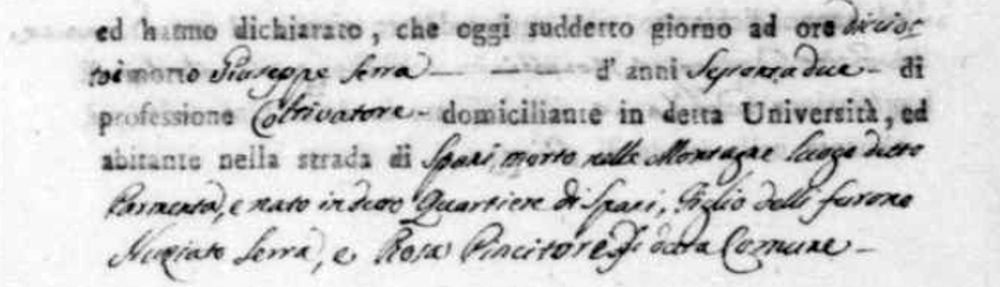 ed hanno dichiarato, che oggi suddetto giorno ad ore diciot
to è morto Giuseppe Serra — — — d'anni Septantadue - di
professione Coltivatore - domiciliante in detta Università, ed
abitante nella strada di Spani, morto nelle Montagne luogo detto
e nato in detto Quartiere di Spani, Figlio delli furono
Nunziato Serra, e Rosa di detta Comune -